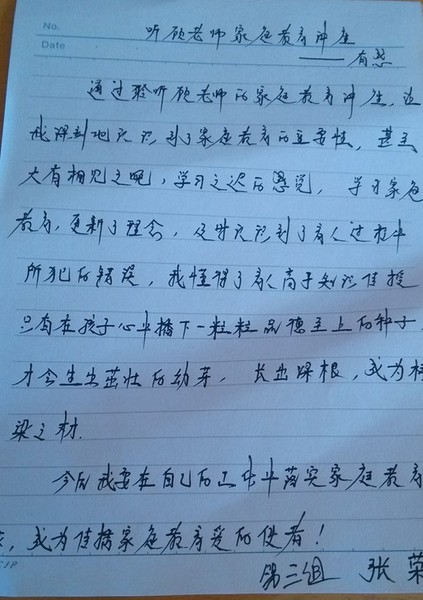 No.
Date
听顾老师家庭教育讲座
——有感
通过聆听顾老师的家庭教育讲座,让
我深刻地认识到了家庭教育的重要性,甚至
大有相见之晚,学习之迟的感觉,学习家庭
教育,更新了理念,及时认识到了育人过程中
所犯的错误,我懂得了育人高于知识传授
只有在孩子心中播下一粒粒品德至上的种子,
才会生出茁壮的幼芽,长出深根,成为栋
梁之材.
今后我要在自己的工作中落实家庭教育
成为传播家庭教育爱的使者!
第三组 张荣